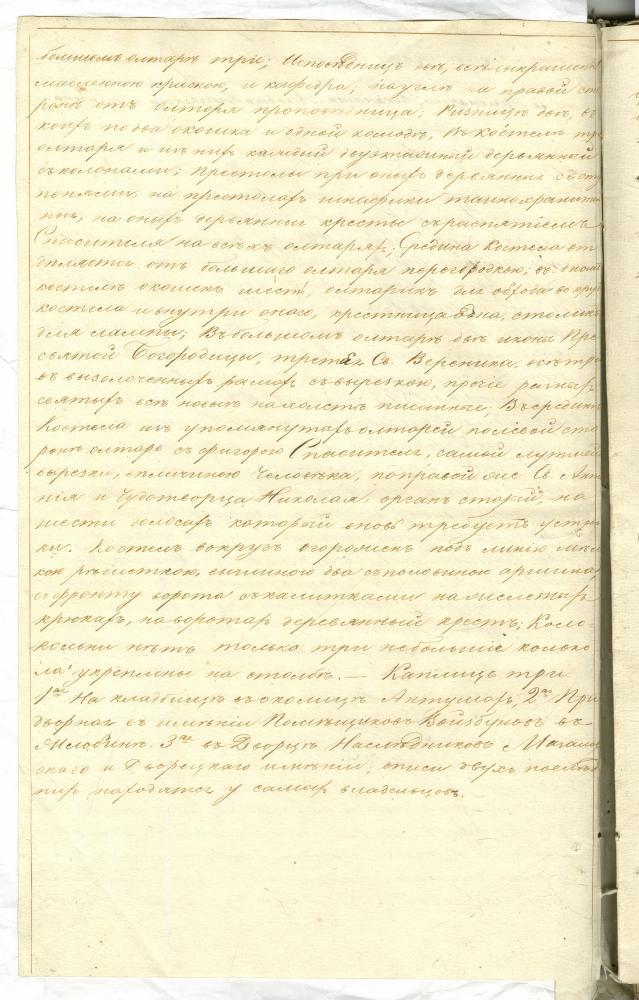 большомъ олтарѣ три; Исповѣдницъ двѣ, всѣ выкрашены
масленною краскою, и кафедра; науглѣ на правой сто
ронѣ отъ олтаря проповѣдница; Ризницъ двѣ, въ
коихъ по два окошка и одной комодѣ, Въ Костелѣ три
олтаря и изъ нихъ каждый двухэтажный деревянный
съ колонами; престолы при оныхъ деревянныя съ сту
пенями, на престолахъ шкафики
на оныхъ деревянныя кресты съ распятіемъ
Спасителя на всѣхъ олтаряхъ; Средина Костела от
дѣляется отъ большаго олтаря перегородкою; въ
костелѣ окошекъ шесть, олтарикъ для
костела и внутри онаго, крестница одна, столикъ
для лампы; Въ большомъ олтарѣ двѣ иконы Пре
святой Богородицы, третья Св. Вероника, всѣ три
въ вызолоченныхъ рамахъ съ вырезкою, прочіе
святыхъ всѣ новыя на холстѣ писанные. Въ срединѣ
Костела изъ упомянутыхъ олтарей по лѣвой сто
ронѣ олтарь съ фигорою Спасителя, самой лутшей
вырезки, величиною Человѣка, по правой же Св. Анто
нія и Чудотворца Николая, органъ старый, на
шести голосахъ который вновь требуетъ устрой
ки. Костелъ вокругъ огороженъ подъ линію
кою рѣшеткою, вышиною два съ половиною аршина,
съ фронту ворота съ калитками на желѣзныхъ
крюкахъ, на воротахъ деревянный крестъ; Коло-
кольни нѣтъ только три небольшіе колоко
ла укреплены на столбѣ. — Каплицъ три
1ая На кладбищѣ въ околицѣ 2ая При
дворная въ имѣніи Помѣщиковъ въ
3ая въ Дворцѣ Наслѣдниковъ
скаго и Дворецкаго имѣній; описи двухъ послѣд
нихъ находятся у самыхъ владельцовъ.